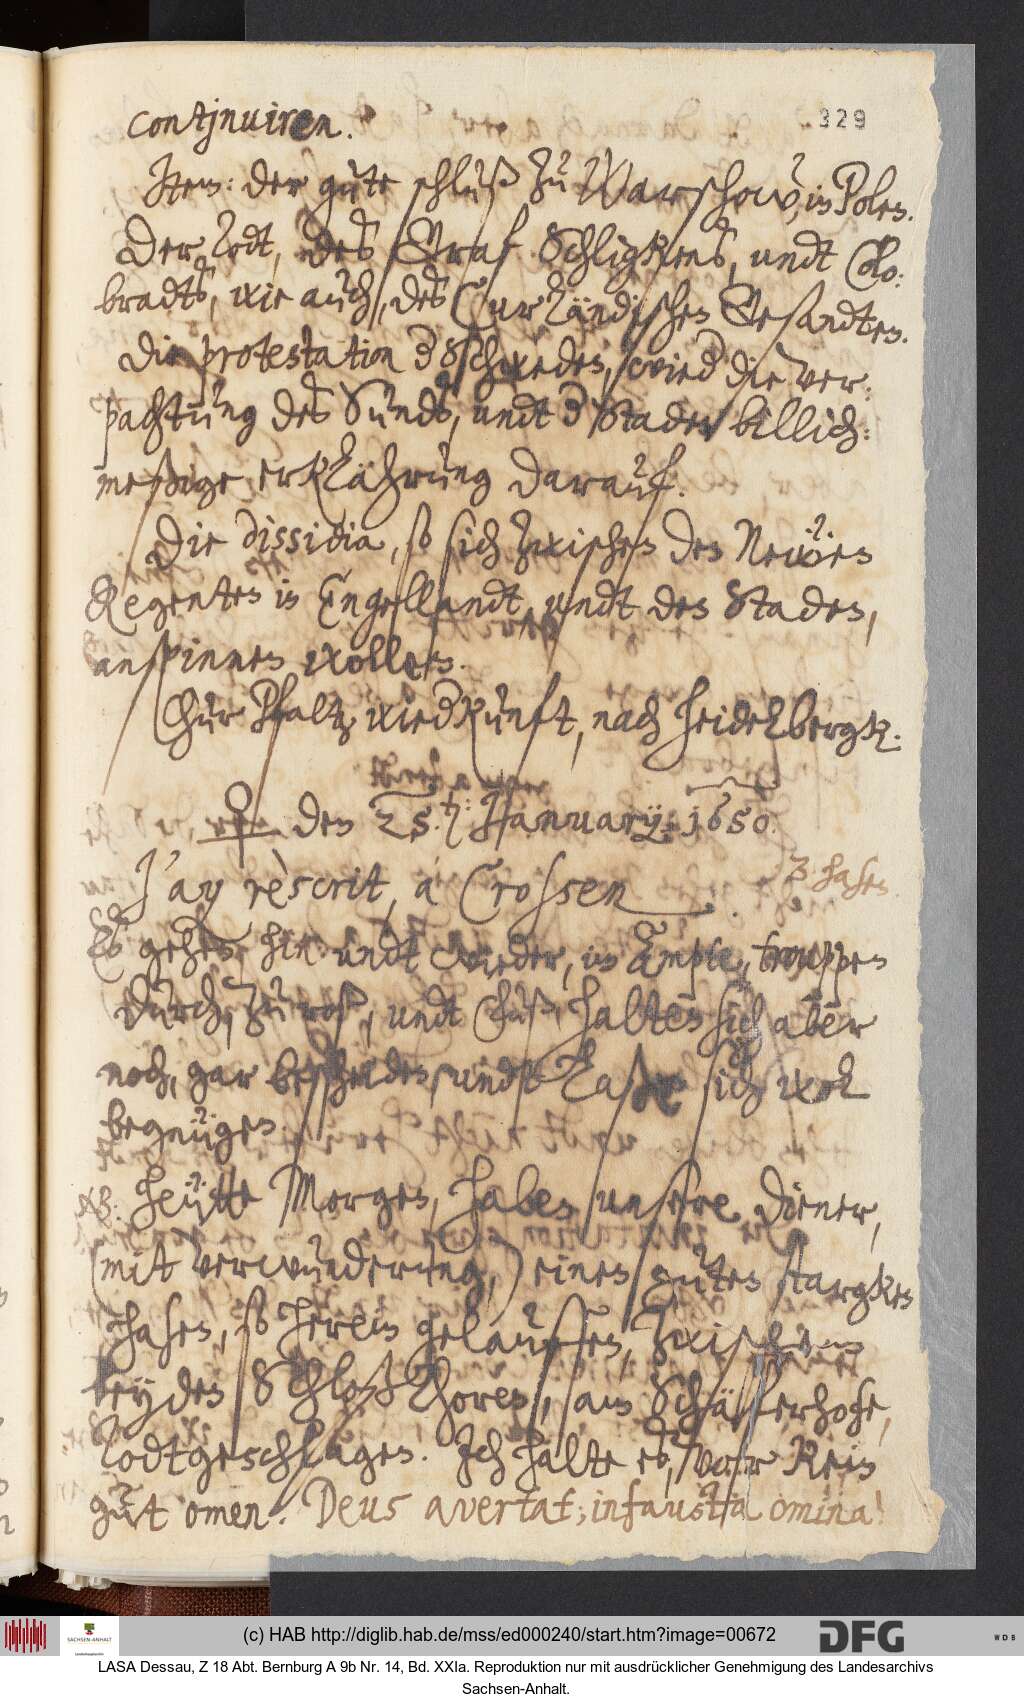 329
contjnuiren.
Item: der gute schluß zu Warschow, in Polen.
Der Todt, des Graf Schligkens, undt Colo:
bradts, wie auch, des Curländischen Gesandten.
Die protestation der Schweden, wieder die ver:
pachtung des Sunds, undt der Staden billich:
meßige erklährung darauf.
Die dissidia, so sich zwischen den Neẅen
Regenten in Engellandt, undt den Staden,
anspinnen wollen.
Chur Pfaltz wiederkunft, nach Heidelbergk.
♀ den 25.ten: Januarij: 1650.
J'ay rèscrit, a Crossen.
2 hasen.
Es gehen hin: undt wieder, im Ampte, trouppen
durch, zu roß, undt fuß, halten sich aber
noch, gar bescheiden, undt laßen sich wol
begnügen.
NB: Heütte Morgen, haben unsere Diener,
(mit verwunderung,) einen guten stargken
Hasen, so herein gelauffen, zwischen
beyden Schloß Thoren, am Schäferhofe,
Todtgeschlagen. Ich halte es, vor kein
gut omen. Deus avertat; infausta omina!
(c) HAB http://diglib.hab.de/mss/ed000240/start.htm?image=00672
SACHSEN-ANHALT
DFG
WDB
LASA Dessau, Z 18 Abt. Bernburg A 9b Nr. 14, Bd. XXIa. Reproduktion nur mit ausdrücklicher Genehmigung des Landesarchivs
Sachsen-Anhalt.